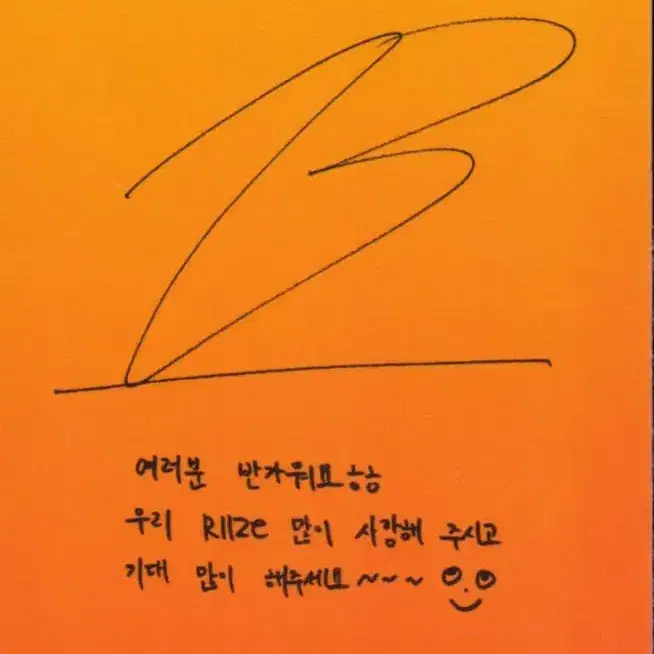 여러분 반가워요ㅎㅎ
우리 RIIZE 많이 사랑해 주시고
기대 많이 해주세요~~~